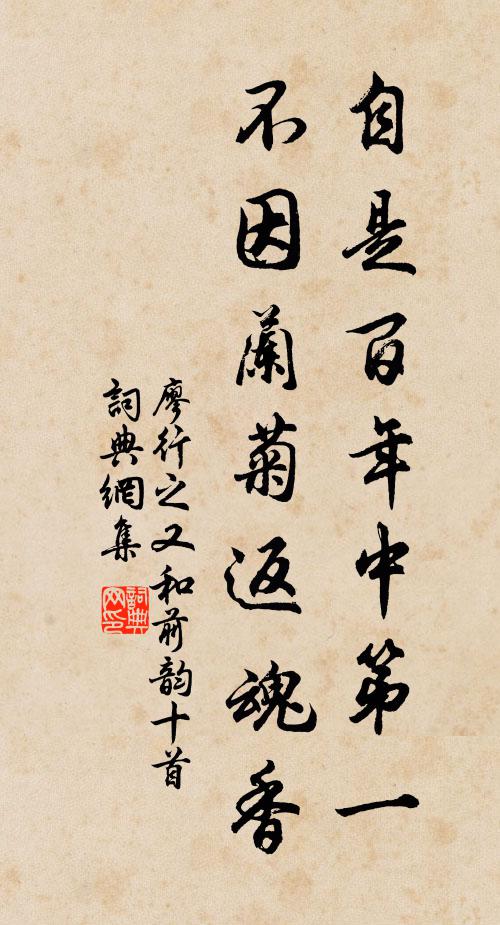 自是百年中第一
不因蘭菊返魂香
廖行之又和前韵十首
詞典網集
詞典
网印